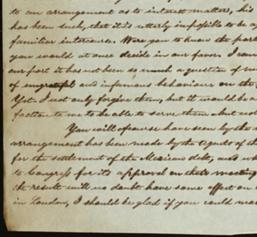 to an arrangement as to interest matters, his
has been such, that it is utterly impossible to be
familiar intercourse. Were you to know the part
you would at once decide in our favor. I can
our part it has not been so much a question of
of ungrateful and infamous behaviour on the
Yet I not only forgive them, but it would be a
faction to me to be able to serve them, but not
You will of course have seen by the
arrangement has been made by the agent of the
for the settlement of the Mexican debt, and
to Congress for its approval on their meeting
the result will no doubt have some effect on
in London, I should be glad if you could